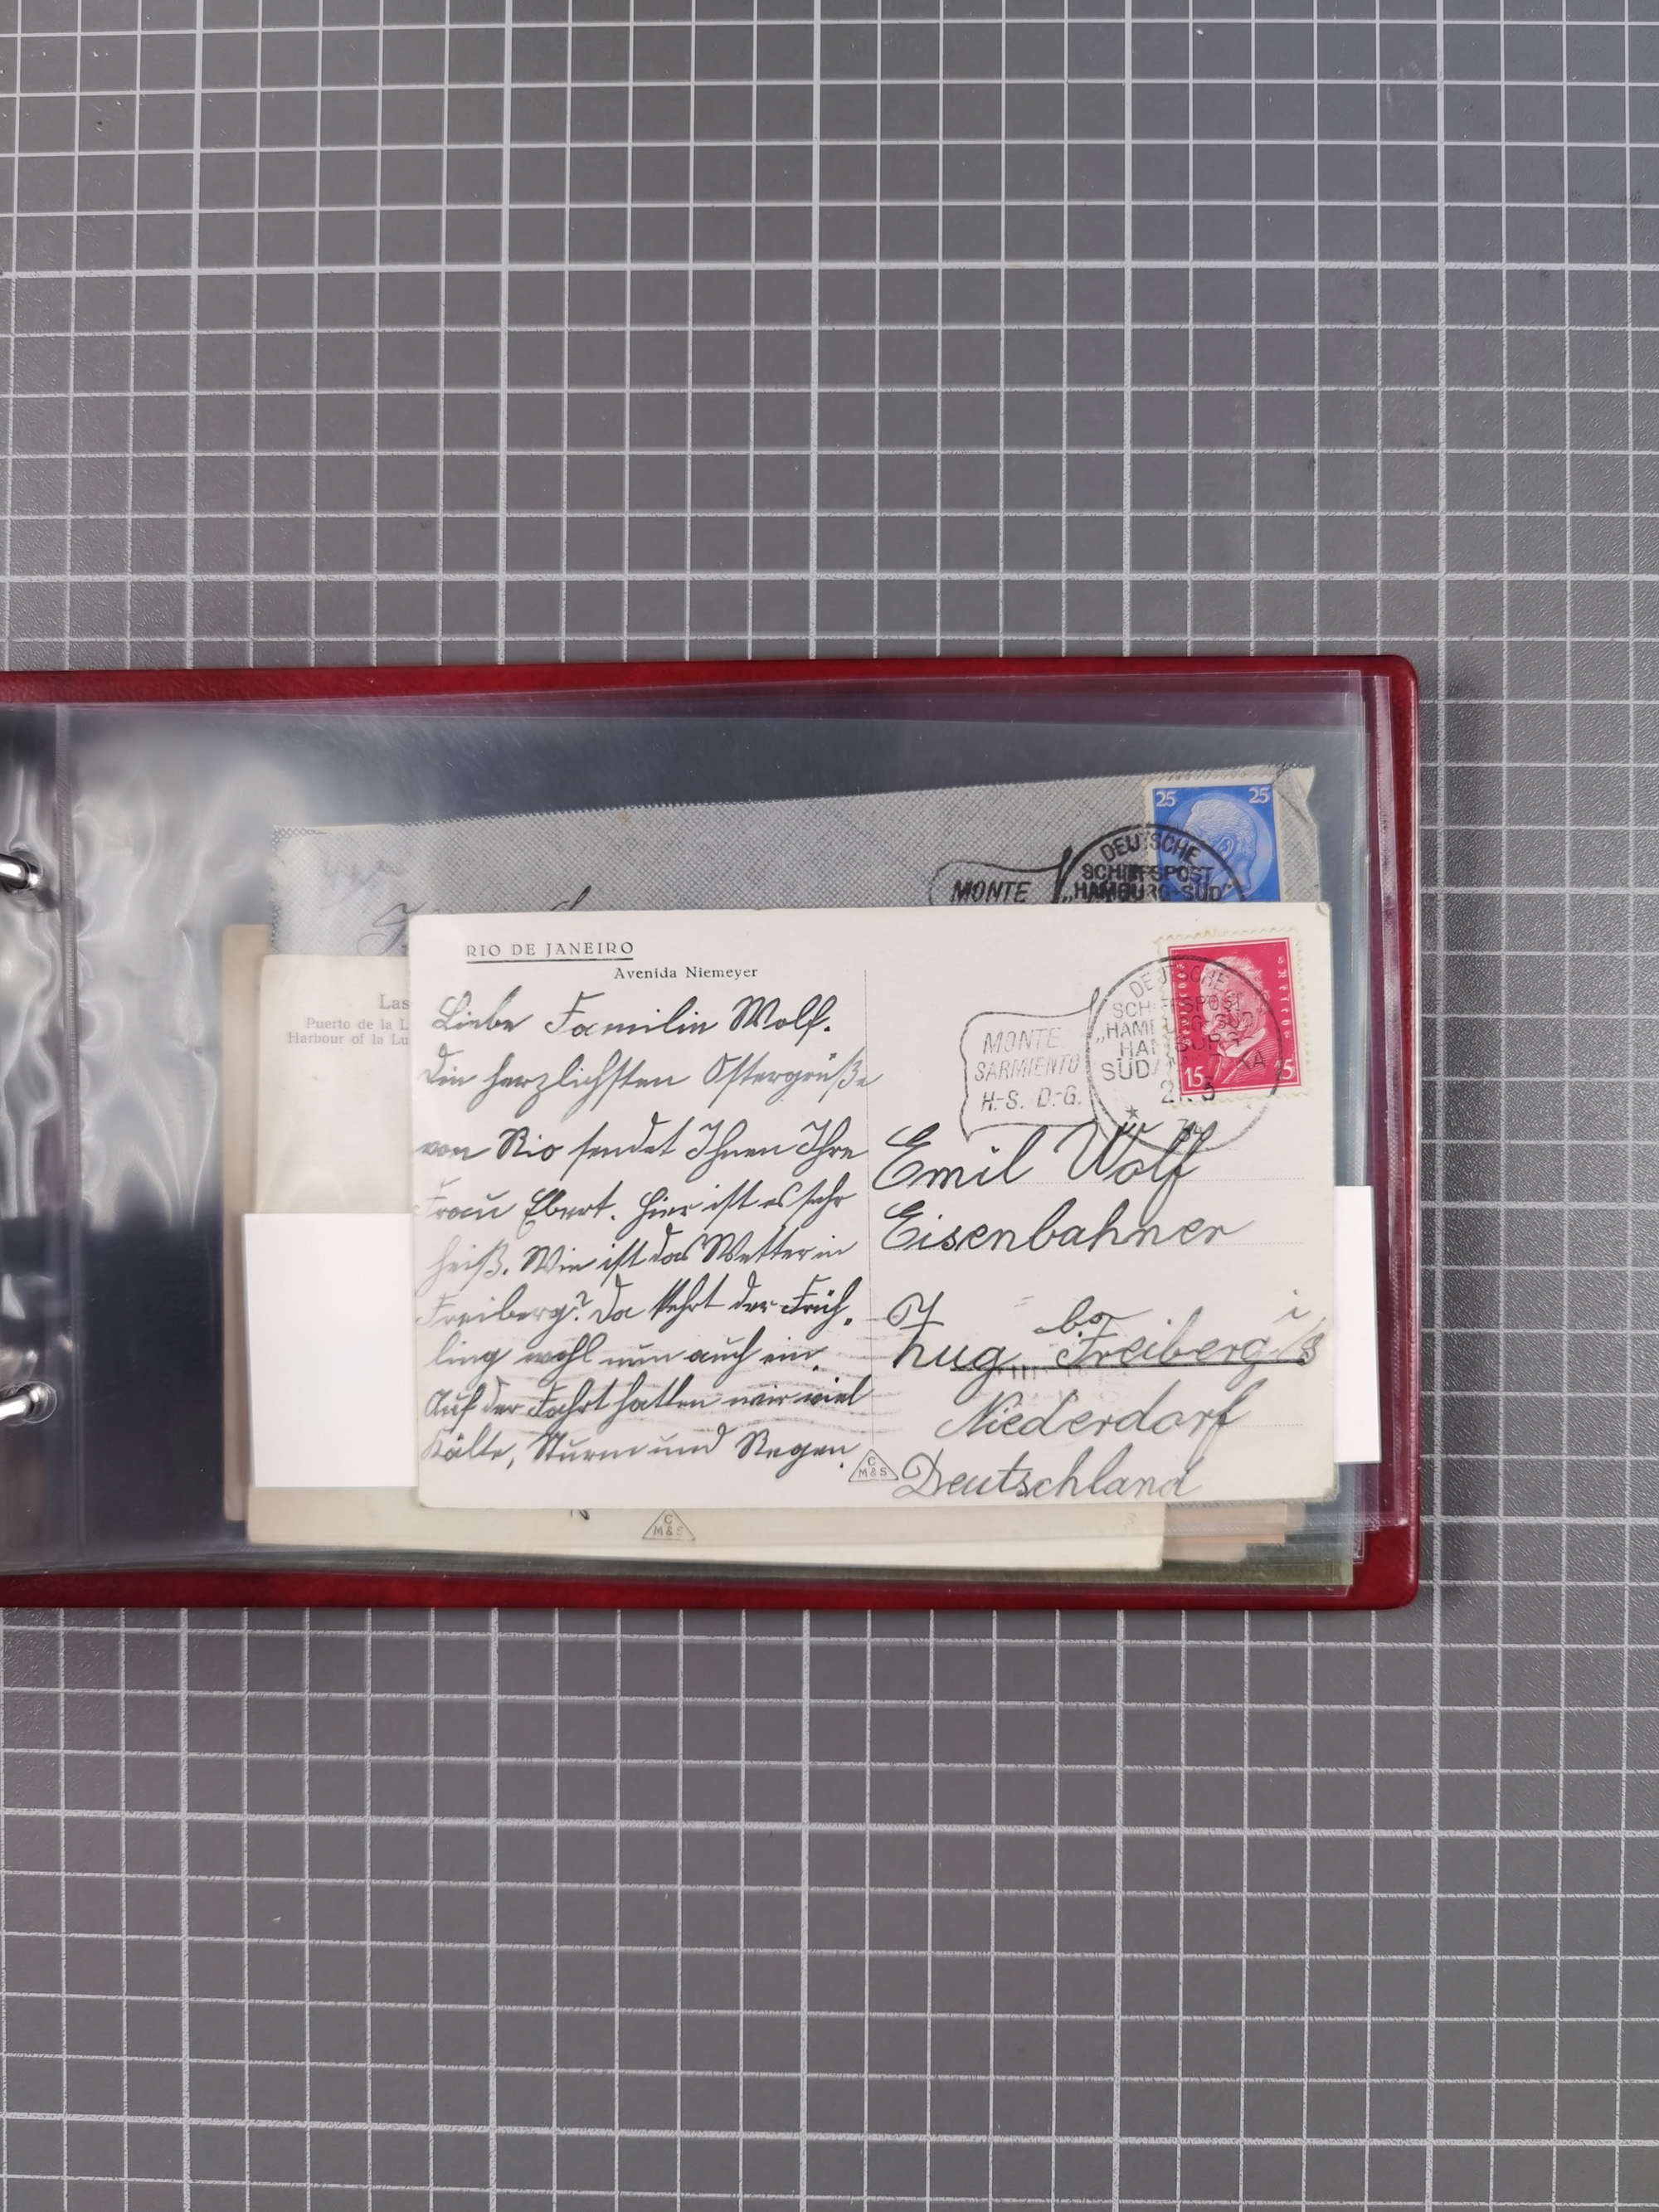 25 25
DEUTSCHE
SCHIFFSPOST
„HAMBURG-SÜD“
MONTE
RIO DE JANEIRO
Avenida Niemeyer
Las
Puerto de la L
Harbour of la Lu
Liebe Familie Wolf.
Die herzlichsten Ostergrüße
von Rio sendet Ihnen Ihre
Frau Ebert. Hier ist es sehr
heiß. Wie ist das Wetter in
Freiberg? Da kehrt der Früh-
ling wohl nun auch ein.
Auf der Fahrt hatten wir viel
Kälte, Sturm und Regen.
DEUTSCHE
SCHIFFSPOST
„HAMBURG-SÜD“
HAMBURG
SÜDAMERIKA
21. 3
MONTE
SARMIENTO
H.-S. D.-G.
15 15
Emil Wolf
Eisenbahner
bei
Zug Freiberg i/S
Niederdorf
Deutschland
C
M&S
C
M&S